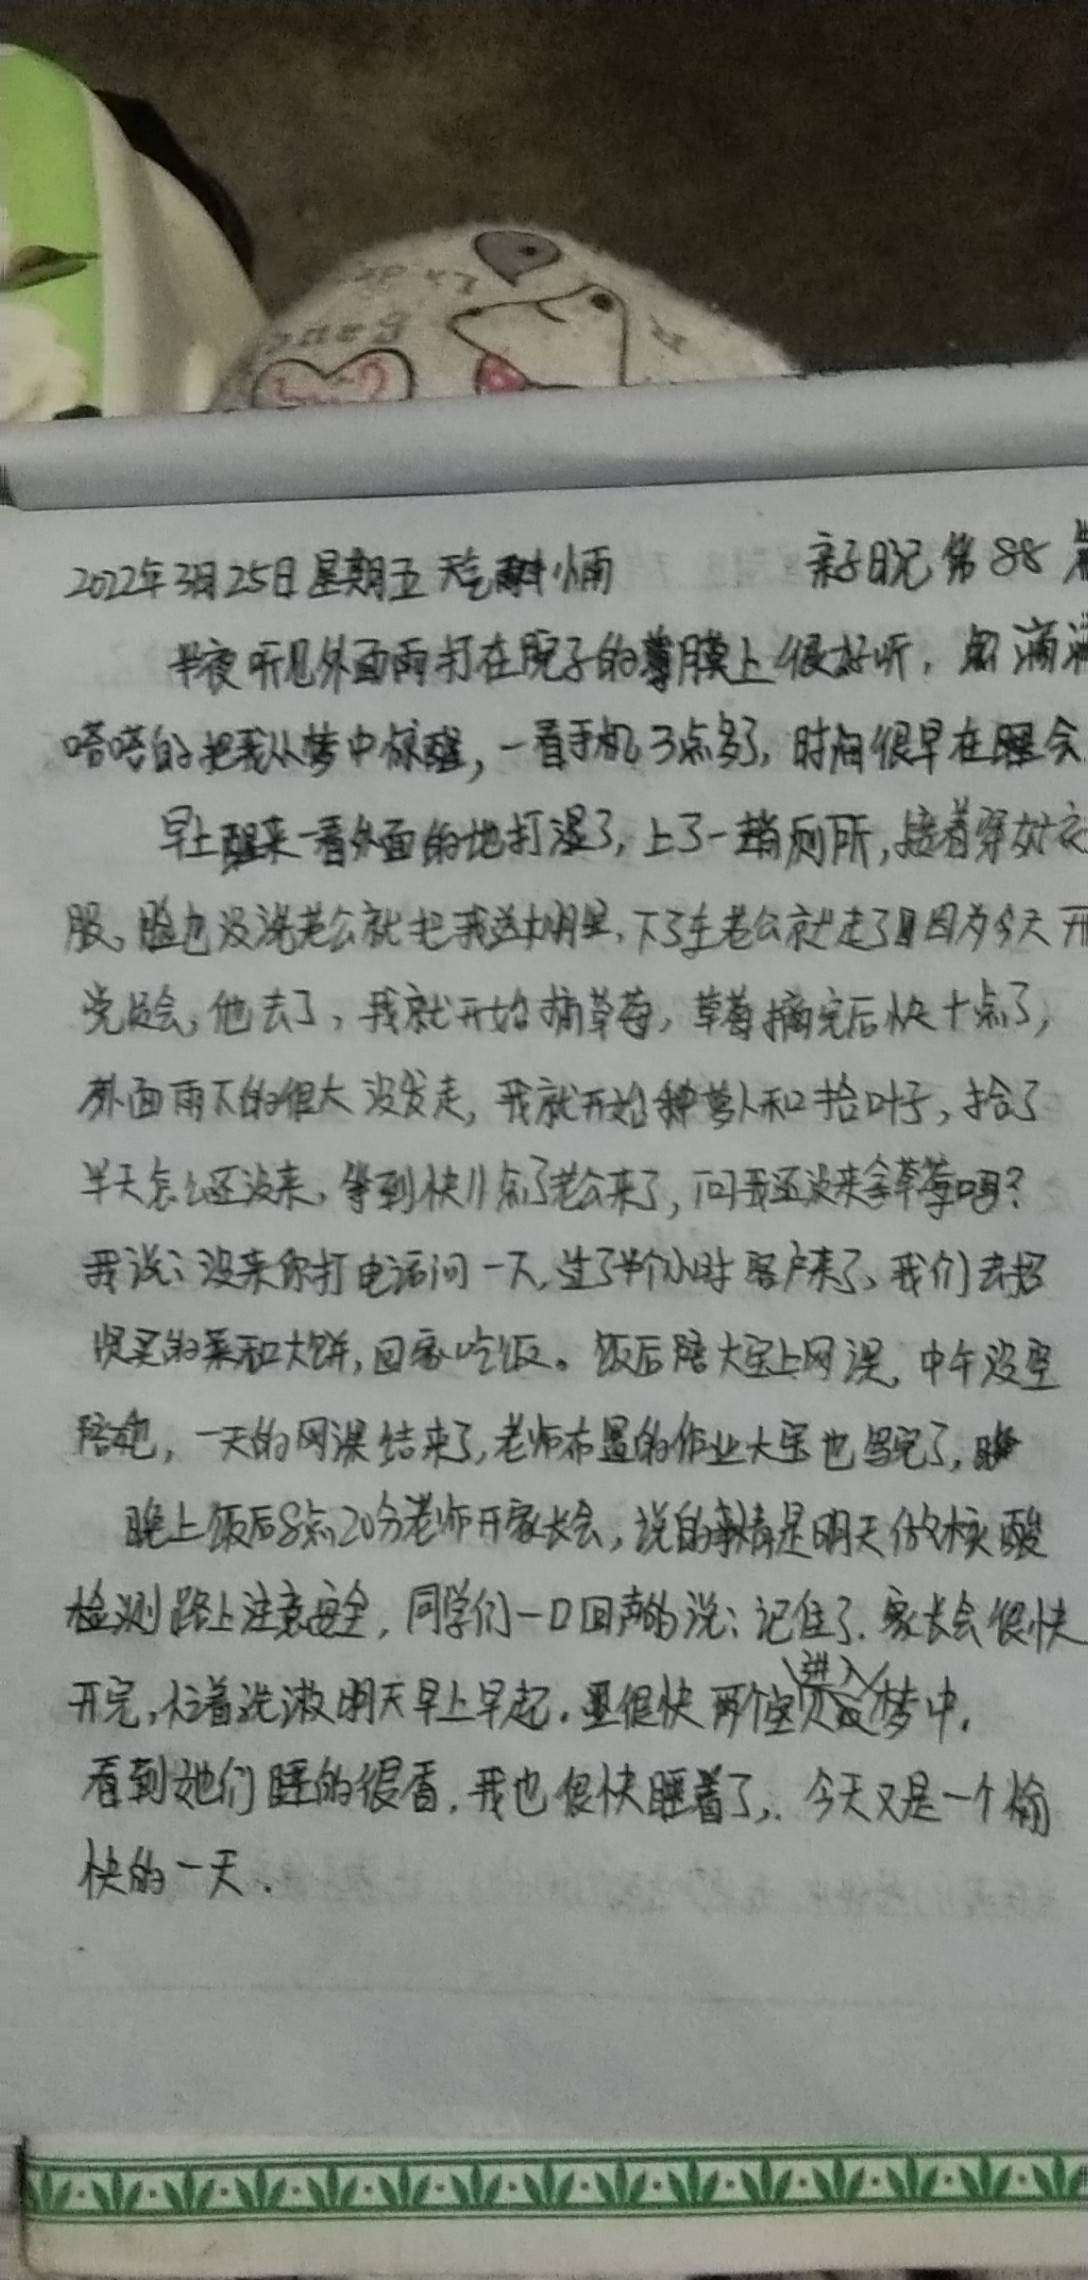 2022年3月25日星期五 天气 小雨 亲子日记 第88篇
半夜听见外面雨打在院子的薄膜上很好听，滴滴
嗒嗒的把我从梦中惊醒，一看手机3点多了，时间很早在睡会
早上醒来一看外面的地打湿了，上了一趟厕所，接着穿好衣
服。脸也没洗老公就把我送大棚里，下了车老公就走了因为今天开
党员会，他去了，我就开始摘草莓，草莓摘完后快十点了，
外面雨下的很大没发走，我就开始种萝卜和拾叶子，拾了
半天怎么还没来，等到快11点了老公来了，问我还没来拿草莓吗？
我说：没来你打电话问一下，过了半个小时客户来了，我们去招
贤买的菜和大饼，回家吃饭。饭后陪大宝上网课，中午没空
陪她，一天的网课结束了，老师布置的作业大宝也写完了，
晚上饭后8点20分老师开家长会，说的事情是明天做核酸
检测路上注意安全，同学们一口回声的说：记住了．家长会很快
进入
开完，忙着洗漱明天早上早起．很快两个宝贝梦中．
看到她们睡的很香，我也很快睡着了，．今天又是一个愉
快的一天．